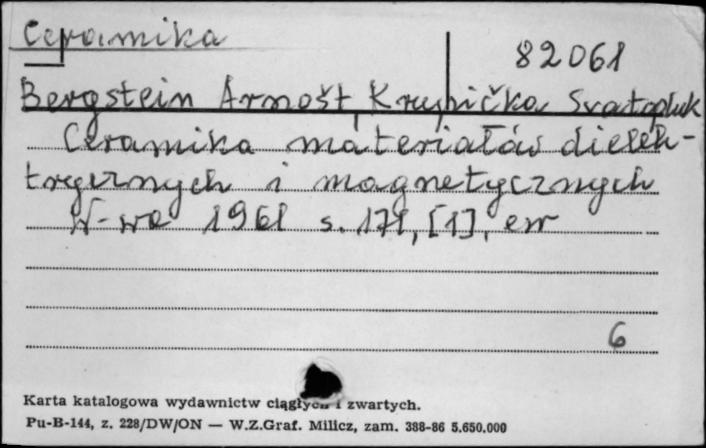 Ceramika
82061
Bergstein Arnošt, Krupička Svatopluk
Ceramika materiałów dielek-
trycznych i magnetycznych
W-wa 1961 s. 171, [1], err
6
Karta katalogowa wydawnictw ciągłych i zwartych.
Pu-B-144, z. 228/DW/ON — W.Z.Graf. Milicz, zam. 388-86 5.650.000